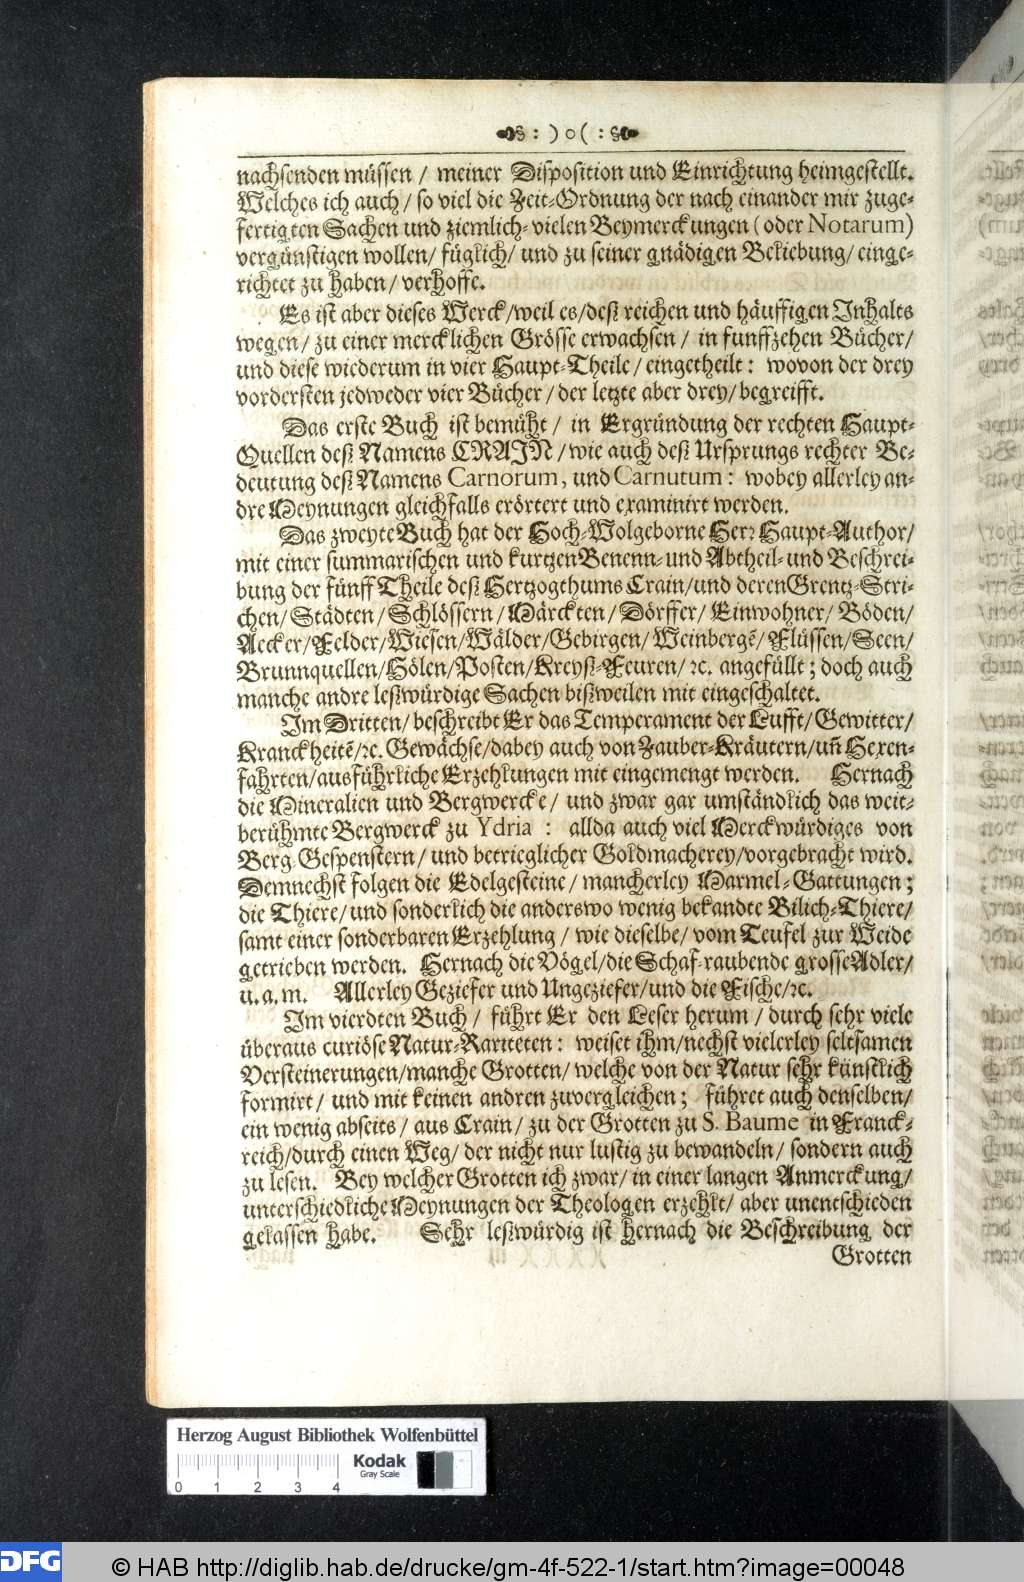 :)o(:
nachsenden müssen / meiner Disposition und Einrichtung heimgestellt.
Welches ich auch / so viel die Zeit-Ordnung der nach einander mir zuge-
fertigten Sachen und ziemlich-vielen Beymerckungen (oder Notarum)
vergünstigen wollen / füglich / und zu seiner gnädigen Beliebung / einge-
richtet zu haben / verhoffe.
Es ist aber dieses Werck / weil es / deß reichen und häuffigen Inhalts
wegen / zu einer mercklichen Grösse erwachsen / in funffzehen Bücher /
und diese wiederum in vier Haupt-Theile / eingetheilt: wovon der drey
vordersten jedweder vier Bücher / der letzte aber drey / begreifft.
Das erste Buch ist bemüht / in Ergründung der rechten Haupt-
Quellen deß Namens CRAIN / wie auch deß Ursprungs rechter Be-
deutung deß Namens Carnorum, und Carnutum: wobey allerley an-
dre Meynungen gleichfalls erörtert und examinirt werden.
Das zweyte Buch hat der Hoch-Wolgeborne Herr Haupt-Author /
mit einer summarischen und kurtzen Benenn- und Abtheil- und Beschrei-
bung der fünff Theile deß Hertzogthums Crain / und deren Grentz-Stri-
chen / Städten / Schlössern / Märckten / Dörffer / Einwohner / Böden /
Aecker / Felder / Wiesen / Wälder / Gebirgen / Weinbergẽ / Flüssen / Seen /
Brunnquellen / Hölen / Posten / Kreyß-Feuren / ꝛc. angefüllt; doch auch
manche andre leßwürdige Sachen bißweilen mit eingeschaltet.
Im Dritten / beschreibt Er das Temperament der Lufft / Gewitter /
Kranckheitẽ / ꝛc. Gewächse / dabey auch von Zauber-Kräutern / uñ Hexen-
fahrten / ausführliche Erzehlungen mit eingemengt werden. Hernach
die Mineralien und Bergwercke / und zwar gar umständlich das weit-
berühmte Bergwerck zu Ydria : allda auch viel Merckwürdiges von
Berg-Gespenstern / und betrieglicher Goldmacherey / vorgebracht wird.
Demnechst folgen die Edelgesteine / mancherley Marmel-Gattungen;
die Thiere / und sonderlich die anderswo wenig bekandte Bilich-Thiere /
samt einer sonderbaren Erzehlung / wie dieselbe / vom Teufel zur Weide
getrieben werden. Hernach die Vögel / die Schaf-raubende grosse Adler /
u. a. m. Allerley Geziefer und Ungeziefer / und die Fische / ꝛc.
Im vierdten Buch / führt Er den Leser herum / durch sehr viele
überaus curiöse Natur-Rariteten: weiset ihm / nechst vielerley seltsamen
Versteinerungen / manche Grotten / welche von der Natur sehr künstlich
formirt / und mit keinen andren zuvergleichen; führet auch denselben /
ein wenig abseits / aus Crain / zu der Grotten zu S. Baume in Franck-
reich / durch einen Weg / der nicht nur lustig zu bewandeln / sondern auch
zu lesen. Bey welcher Grotten ich zwar / in einer langen Anmerckung /
unterschiedliche Meynungen der Theologen erzehlt / aber unentschieden
gelassen habe. Sehr leßwürdig ist hernach die Beschreibung der
Grotten
Herzog August Bibliothek Wolfenbüttel
Kodak
Gray Scale
0 1 2 3 4
DFG
© HAB http://diglib.hab.de/drucke/gm-4f-522-1/start.htm?image=00048